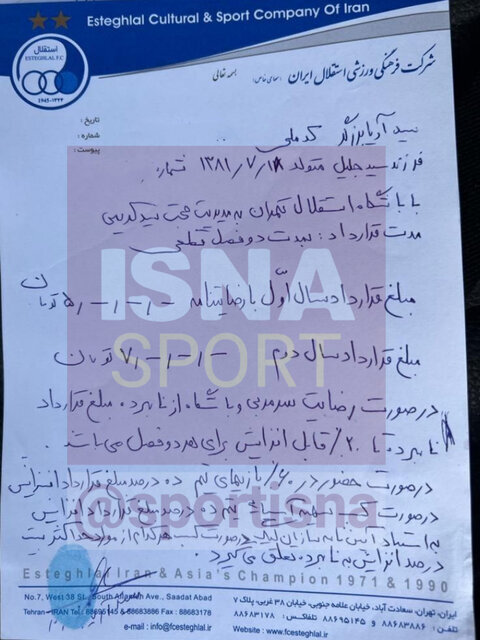 Esteghlal Cultural & Sport Company Of Iran
شرکت فرهنگی ورزشی استقلال ایران (سهامی خاص)
بسمه تعالی
استقلال
ESTEGHLAL F.C
1945-۱۳۲۴
تاریخ :
شماره :
پیوست :
سید آریا بزرگر کد ملی
فرزند سید جلیل متولد ۱۳۸۱/۷/۱۸ شماره
با باشگاه استقلال تهران به مدیریت حجت
مدت قرارداد : بمدت دو فصل قطعی
مبلغ قرارداد سال اول با رضایتنامه ۵/-/-/- تومان
مبلغ قرارداد سال دوم ۷/-/-/- تومان
در صورت رضایت سرمربی و باشگاه از نامبرده مبلغ قرارداد
نامبرده تا ۲۰٪ قابل افزایش برای هر دو فصل می باشد .
در صورت حضور در ۶۰٪ بازیهای تیم ده درصد مبلغ قرارداد افزایش
در صورت کسب سهمیه آسیایی تیم ده درصد مبلغ قرارداد افزایش
به استناد آئین نامه سازمان لیگ در صورت کسب هر کدام از موارد حداکثر بیست
درصد افزایش به نامبرده تعلق می گیرد .
ISNA
SPORT
@sportisna
Esteghlal Iran & Asia's Champion 1971 & 1990
No.7, West 38 St., South Allameh Ave., Saadat Abad
Tehran-IRAN Tel : 88695145 & 88683886 Fax : 88683178
e-mail : info@fcesteghlal.ir
ایران، تهران، سعادت آباد، خیابان علامه جنوبی، خیابان ۳۸ غربی، پلاک ۷
تلفن : ۸۸۶۸۳۸۸۶ - ۸۸۶۹۵۱۴۵ فاکس : ۸۸۶۸۳۱۷۸
Website : www.fcesteghlal.ir